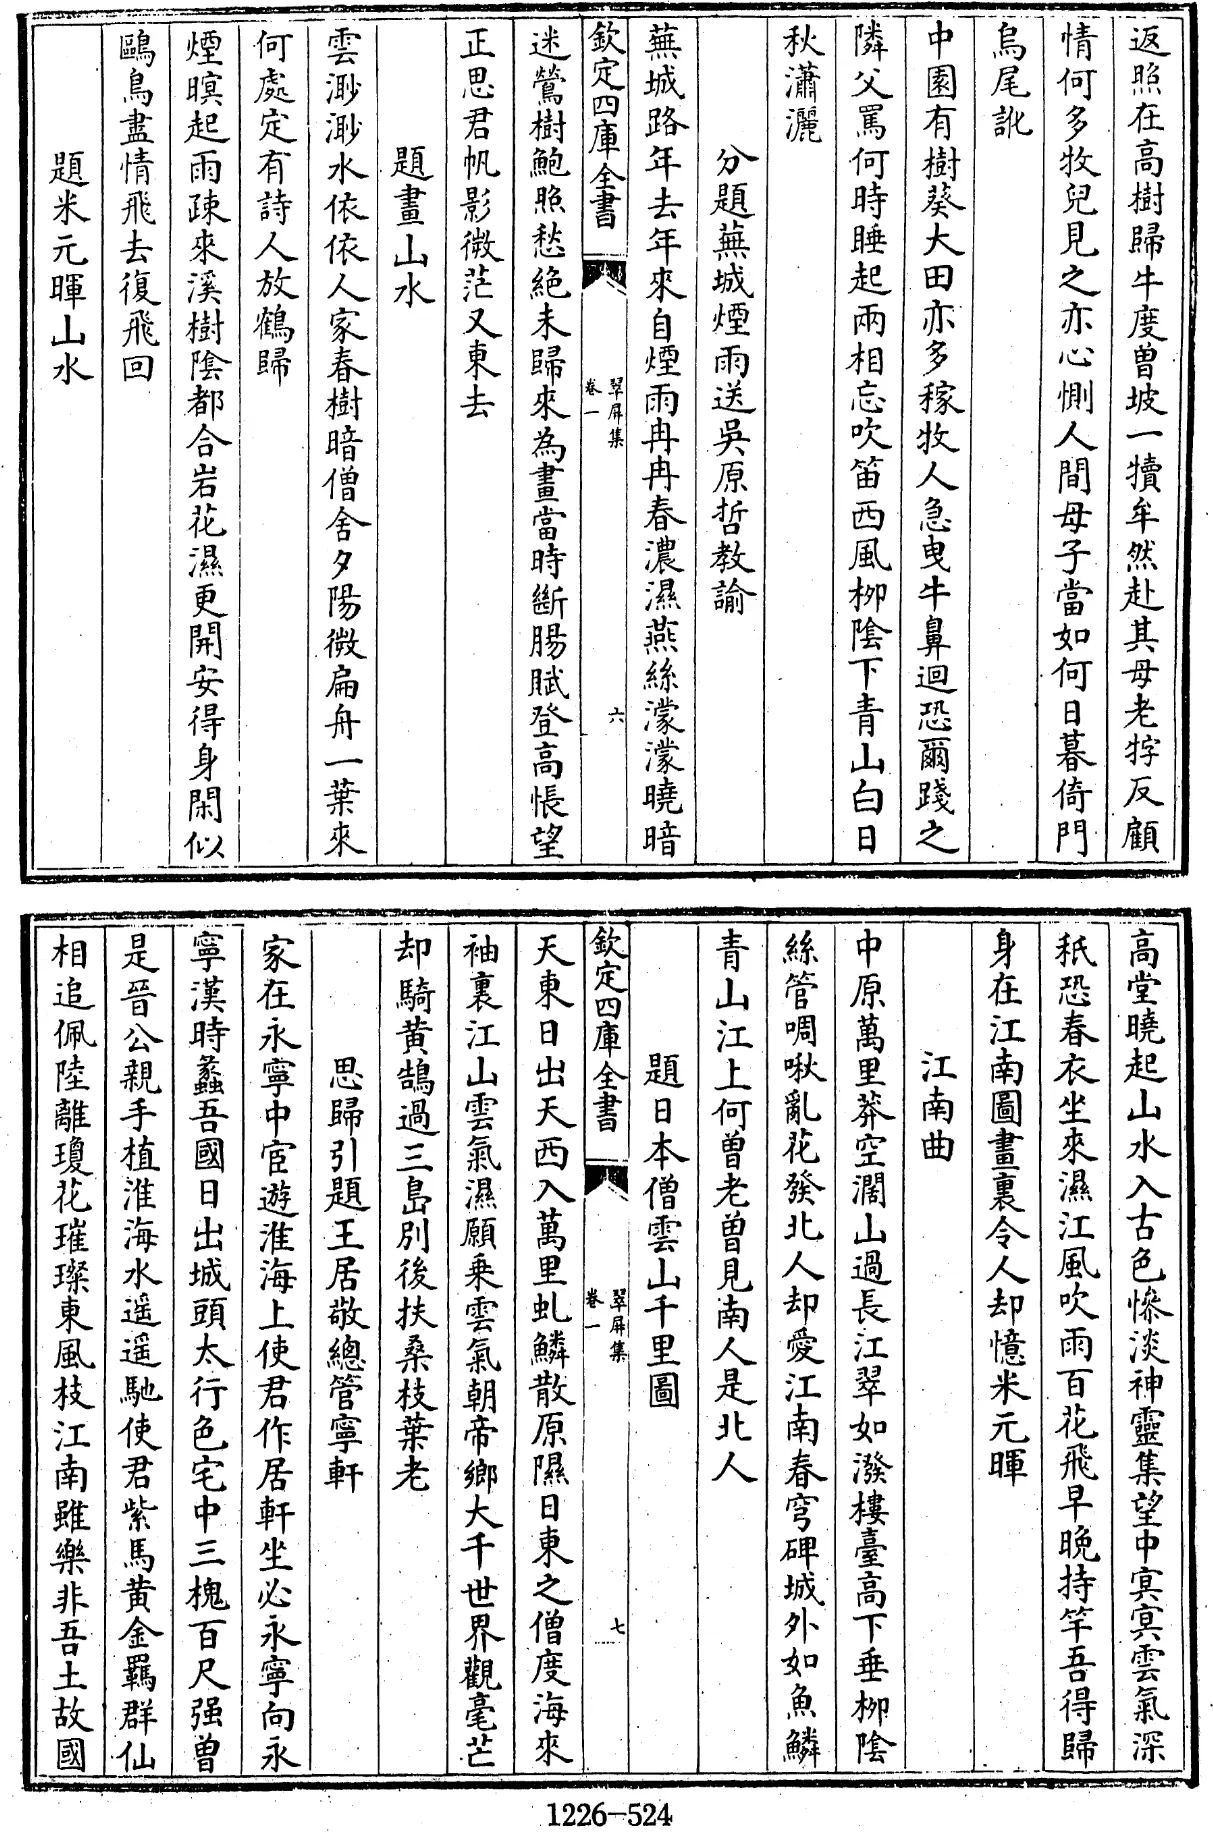 返照在高樹歸牛度曽坡一犢牟然赴其母老牸反顧
情何多牧兒見之亦心惻人間母子當如何日暮倚門
烏尾訛
中園有樹葵大田亦多稼牧人急曳牛鼻迴恐爾踐之
隣父罵何時睡起兩相忘吹笛西風栁陰下青山白日
秋瀟灑
分題蕪城煙雨送吳原哲教諭
蕪城路年去年來自煙雨冉冉春濃濕燕絲濛濛曉暗
欽定四庫全書
翠屏集
卷一
六
迷鶯樹鮑照愁絶未歸來為畫當時斷腸賦登高悵望
正思君帆影微茫又東去
題畫山水
雲渺渺水依依人家春樹暗僧舍夕陽微扁舟一葉來
何處定有詩人放鶴歸
煙暝起雨疎來溪樹陰都合岩花濕更開安得身閑似
鷗鳥盡情飛去復飛回
題米元暉山水
高堂曉起山水入古色慘淡神靈集望中冥冥雲氣深
秖恐春衣坐來濕江風吹雨百花飛早晚持竿吾得歸
身在江南圖畫裏令人却憶米元暉
江南曲
中原萬里莽空濶山過長江翠如潑樓臺高下垂栁陰
絲管啁啾亂花發北人却愛江南春穹碑城外如魚鱗
青山江上何曽老曽見南人是北人
題日本僧雲山千里圖
欽定四庫全書
翠屏集
卷一
七
天東日出天西入萬里虬鱗散原隰日東之僧度海來
袖裏江山雲氣濕願乗雲氣朝帝鄉大千世界觀毫芒
却騎黃鵠過三島別後扶桑枝葉老
思歸引題王居敬總管寧軒
家在永寧中宦遊淮海上使君作居軒坐必永寧向永
寧漢時蠡吾國日出城頭太行色宅中三槐百尺强曽
是晉公親手植淮海水遥遥馳使君紫馬黃金羈群仙
相追佩陸離瓊花璀璨東風枝江南雖樂非吾土故國
1226-524